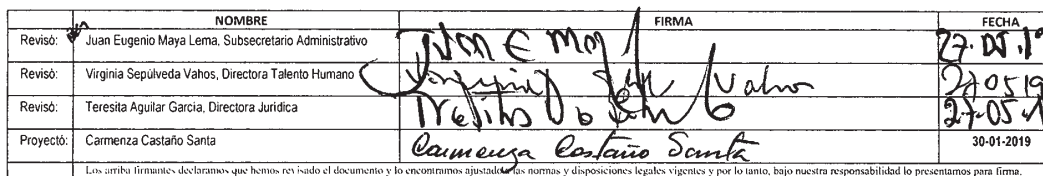 NOMBRE FIRMA FECHA
Revisó: Juan Eugenio Maya Lema, Subsecretario Administrativo Juan E May 27.05.19
Revisó: Virginia Sepúlveda Vahos, Directora Talento Humano Virginia Vahos 270519
Revisó: Teresita Aguilar Garcia, Directora Jurídica 27-05-
Proyectó: Carmenza Castaño Santa Carmenza Castaño Santa 30-01-2019
Los arriba firmantes declaramos que hemos revisado el documento y lo encontramos ajustado a las normas y disposiciones legales vigentes y por lo tanto, bajo nuestra responsabilidad lo presentamos para firma.